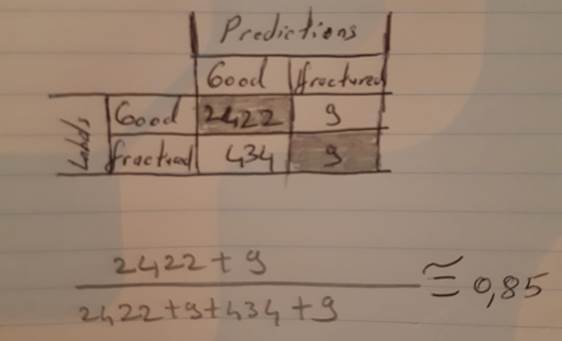 Predictions
Good fractured
Good 2422 9
Labels fractured 434 9
2422 + 9
2422+9+434+9
≅ 0,85